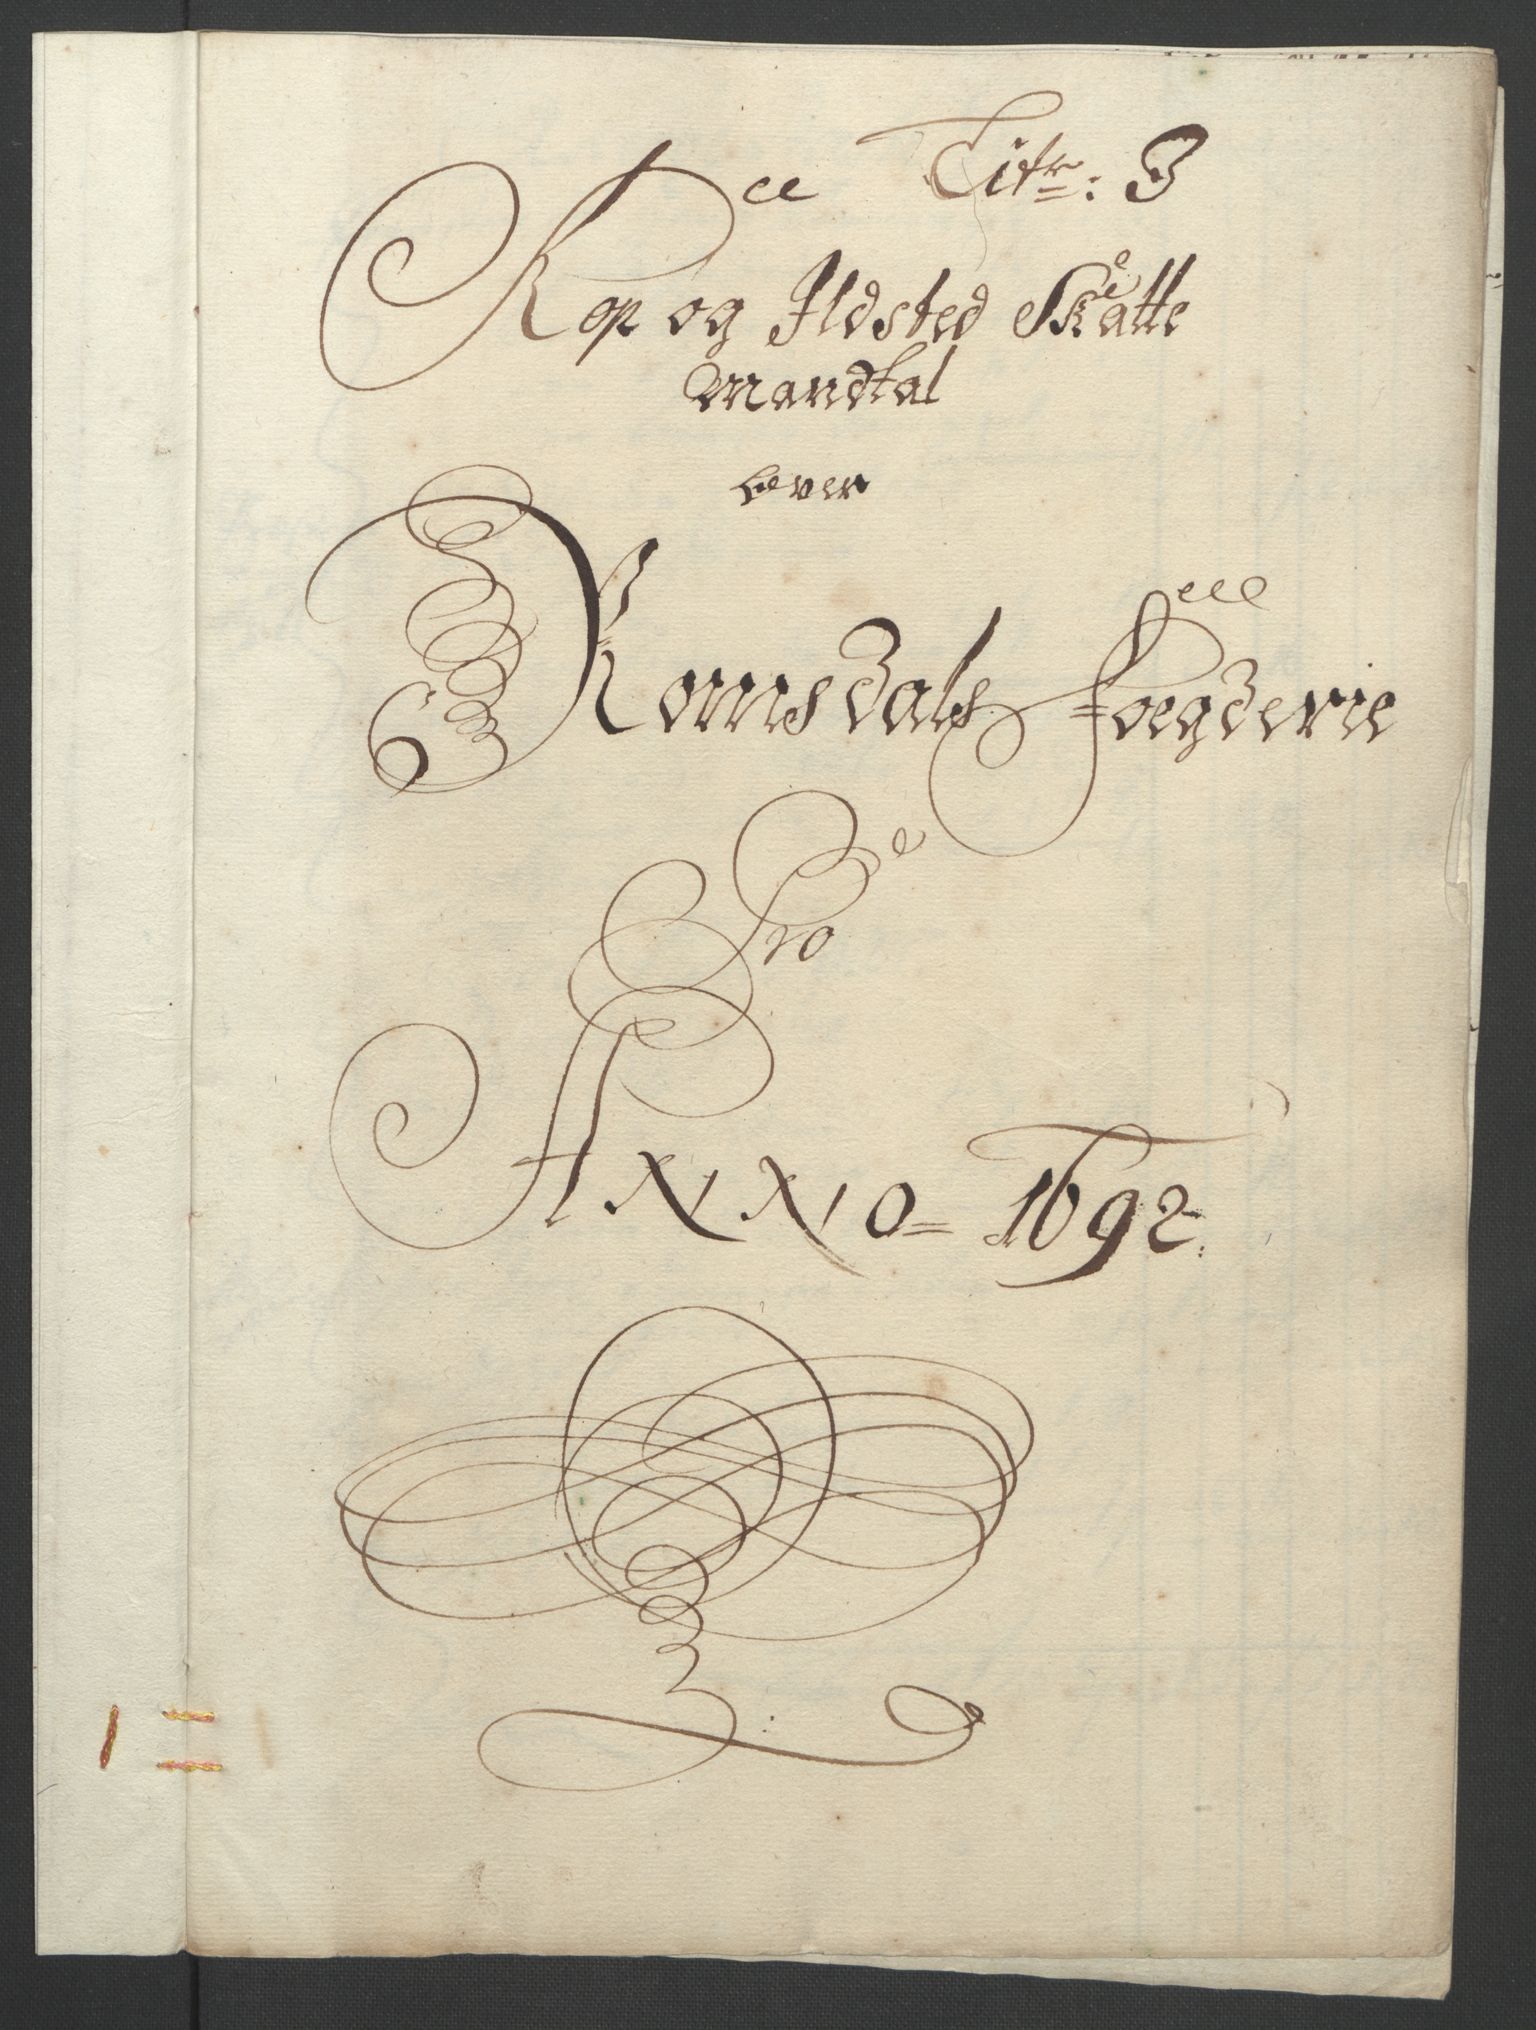 Litr: 3
Kop og Ildsted Skatte
Mandtal
over
Romsdals Foegderie
Pro
ANNO 1692.